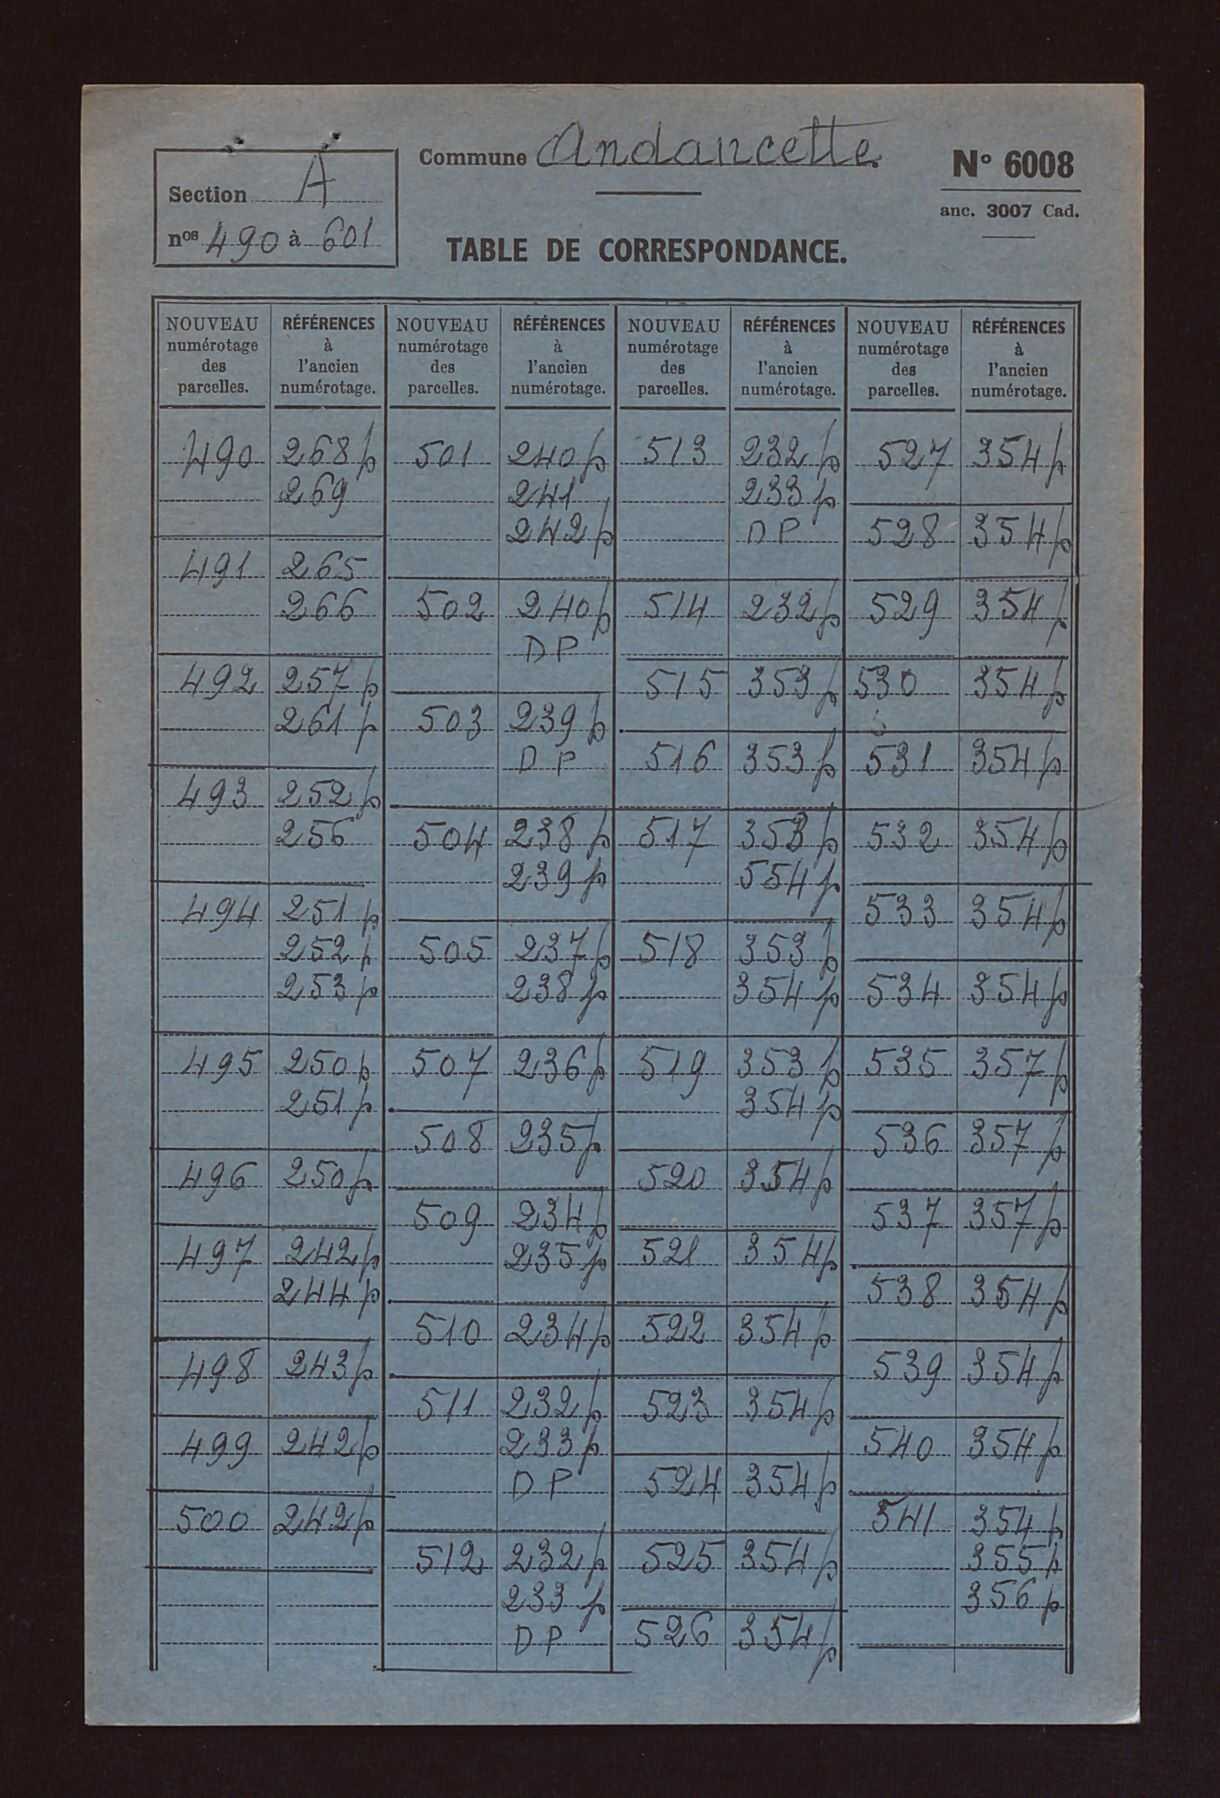 Section A
nos 490 à 601
Commune Andancette
N° 6008
anc. 3007 Cad.
TABLE DE CORRESPONDANCE.
NOUVEAU numérotage des parcelles.
RÉFÉRENCES à l'ancien numérotage.
490 268 p
269
491 265
266
492 257 p
261 p
493 252 p
256
494 251 p
252 p
253 p
495 250 p
251 p
496 250 p
497 242 p
244 p
498 243 p
499 242 p
500 242 p
NOUVEAU numérotage des parcelles.
RÉFÉRENCES à l'ancien numérotage.
501 240 p
241
242 p
502 240 p
DP
503 239 p
DP
504 238 p
239 p
505 237 p
238 p
507 236 p
508 235 p
509 234 p
235 p
510 234 p
511 232 p
233 p
DP
512 232 p
233 p
DP
NOUVEAU numérotage des parcelles.
RÉFÉRENCES à l'ancien numérotage.
513 232 p
233 p
DP
514 232 p
515 353 p
516 353 p
517 353 p
554 p
518 353 p
354 p
519 353 p
354 p
520 354 p
521 354 p
522 354 p
523 354 p
524 354 p
525 354 p
526 354 p
NOUVEAU numérotage des parcelles.
RÉFÉRENCES à l'ancien numérotage.
527 354 p
528 354 p
529 354 p
530 354 p
531 354 p
532 354 p
533 354 p
534 354 p
535 357 p
536 357 p
537 357 p
538 354 p
539 354 p
540 354 p
541 354 p
355 p
356 p